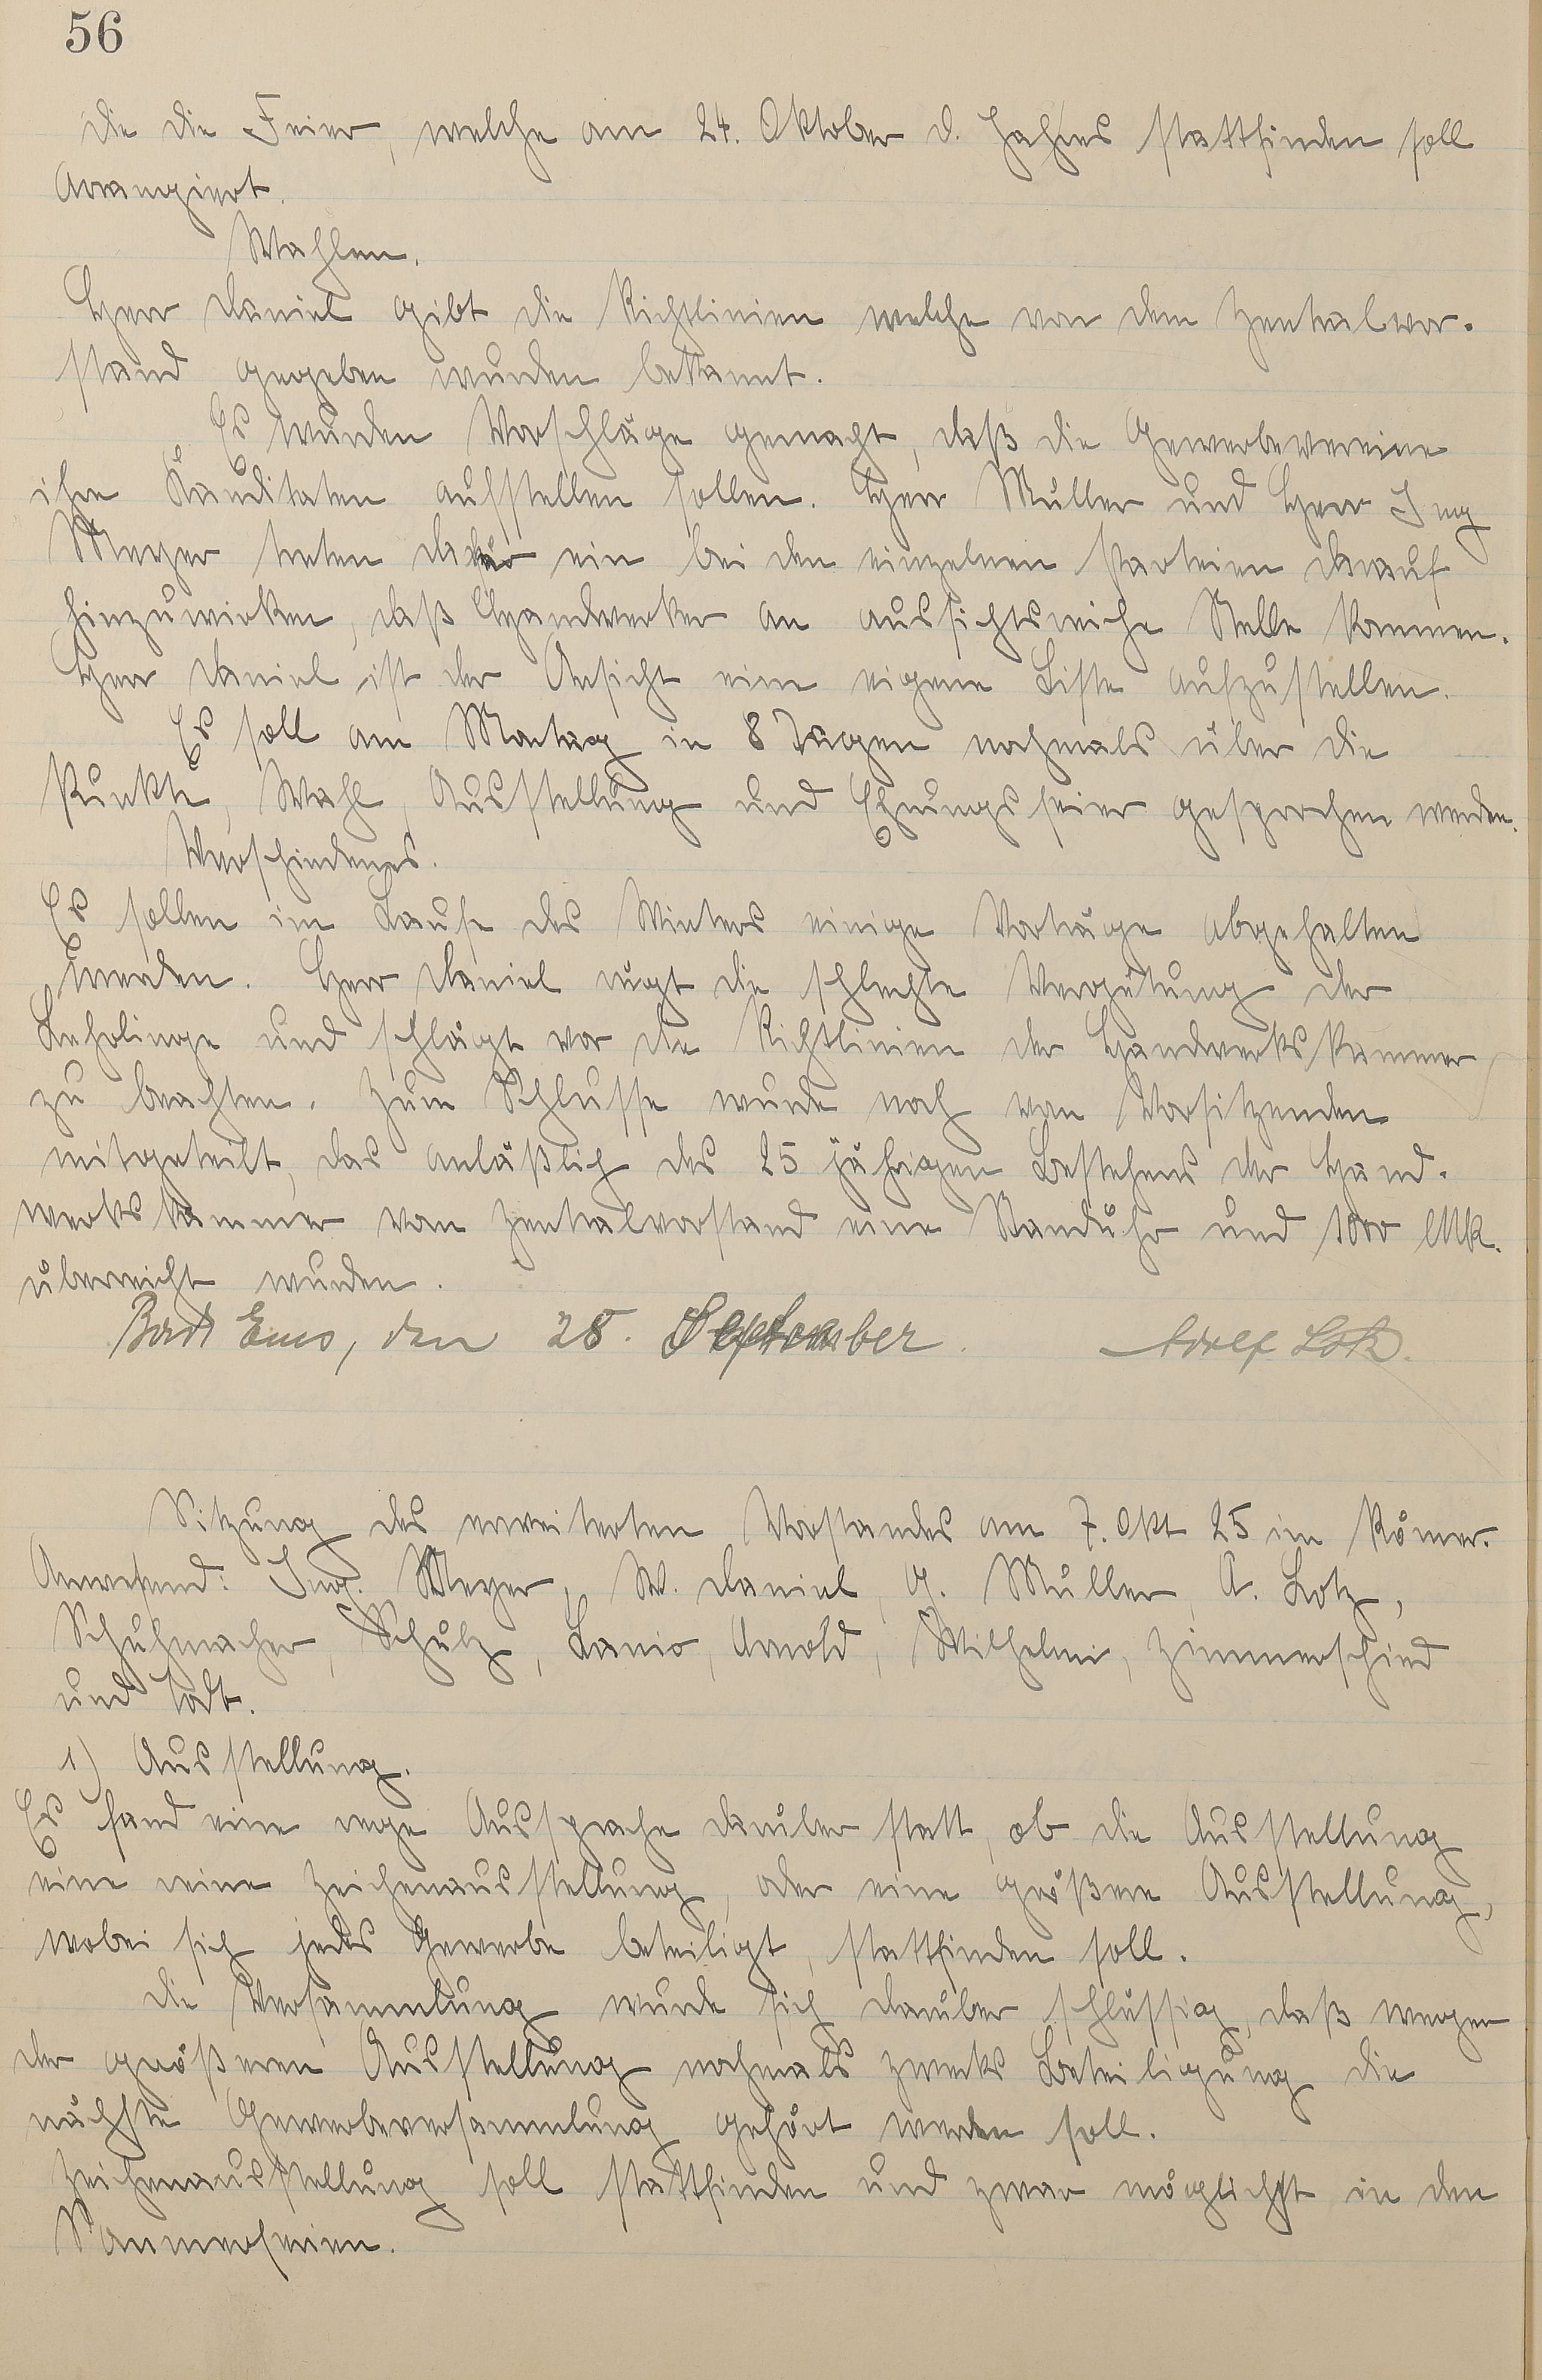 56
die die Feier, welche am 24. Oktober d. Jahres stattfinden soll
Arrangiert.
Wahlen.
Herr Daniel gibt die Richtlinien welche von dem Zentralvor-
stand gegeben wurden bekannt.
Es wurden Vorschläge gemacht, daß die Gewerbevereine
ihre Kanditaten aufstellen sollen. Herr Müller und Herr Ing
Meyer treten dafür ein bei den einzelnen Parteien darauf
hinzuwirken, daß Handwerker an aussichtsreiche Stelle kommen.
Herr Daniel ist der Ansicht eine eigene Liste aufzustellen.
Es soll am Montag in 8 Tagen nochmals über die
Punkte, Wahl, Ausstellung und Ehrungsfeier gesprochen werden.
Verschiedenes.
Es sollen im Laufe des Winters einige Vorträge abgehalten
werden. Herr Daniel rügt die schlechte Vergütung der
Lehrlinge und schlägt vor die Richtlinien der Handwerkskammer
zu beachten. Zum Schlusse wurde noch vom Vorsitzenden
mitgeteilt, das anläßlich des 25 jährigen Bestehens der Hand-
werkskammer vom Zentralvorstand eine Standuhr und 1000 Mk.
überreicht wurden.
Bad Ems, den 28. September. Adolf Lotz.
Sitzung des erweiterten Vorstandes am 7. Okt 25 im Römer.
Anwesend: Ing. Meyer, W. Daniel, G. Müller, A. Lotz,
Schuhmacher, Schulz, Lanio, Arnold, Wilhelmi, Zimmerschied
und Todt.
1) Ausstellung.
Es fand eine rege Aussprache darüber statt, ob die Ausstellung
eine reine Zeichenausstellung, oder eine größere Ausstellung,
wobei sich jedes Gewerbe beteiligt, stattfinden soll.
Die Versammlung wurde sich darüber schlüssig, daß wegen
der größeren Ausstellung nochmals zwecks Beteiligung die
nächste Gewerbeversammlung gehört werden soll.
Zeichenausstellung soll stattfinden und zwar möglichst in den
Sommerferien.